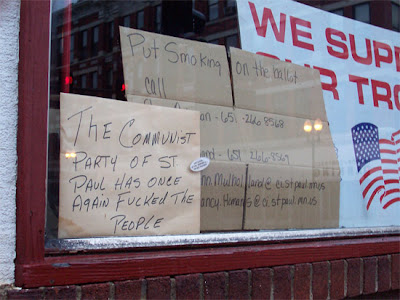 Put Smoking on the ballot
call
on - 651-266-8568
and - 651-266-8569
land@ci.stpaul.mn.us
ancy.Homans@ci.stpaul.mn.us
THE COMMUNIST
PARTY OF ST
PAUL HAS ONCE
AGAIN FUCKED THE
PEOPLE
WE SUP
OUR TRO